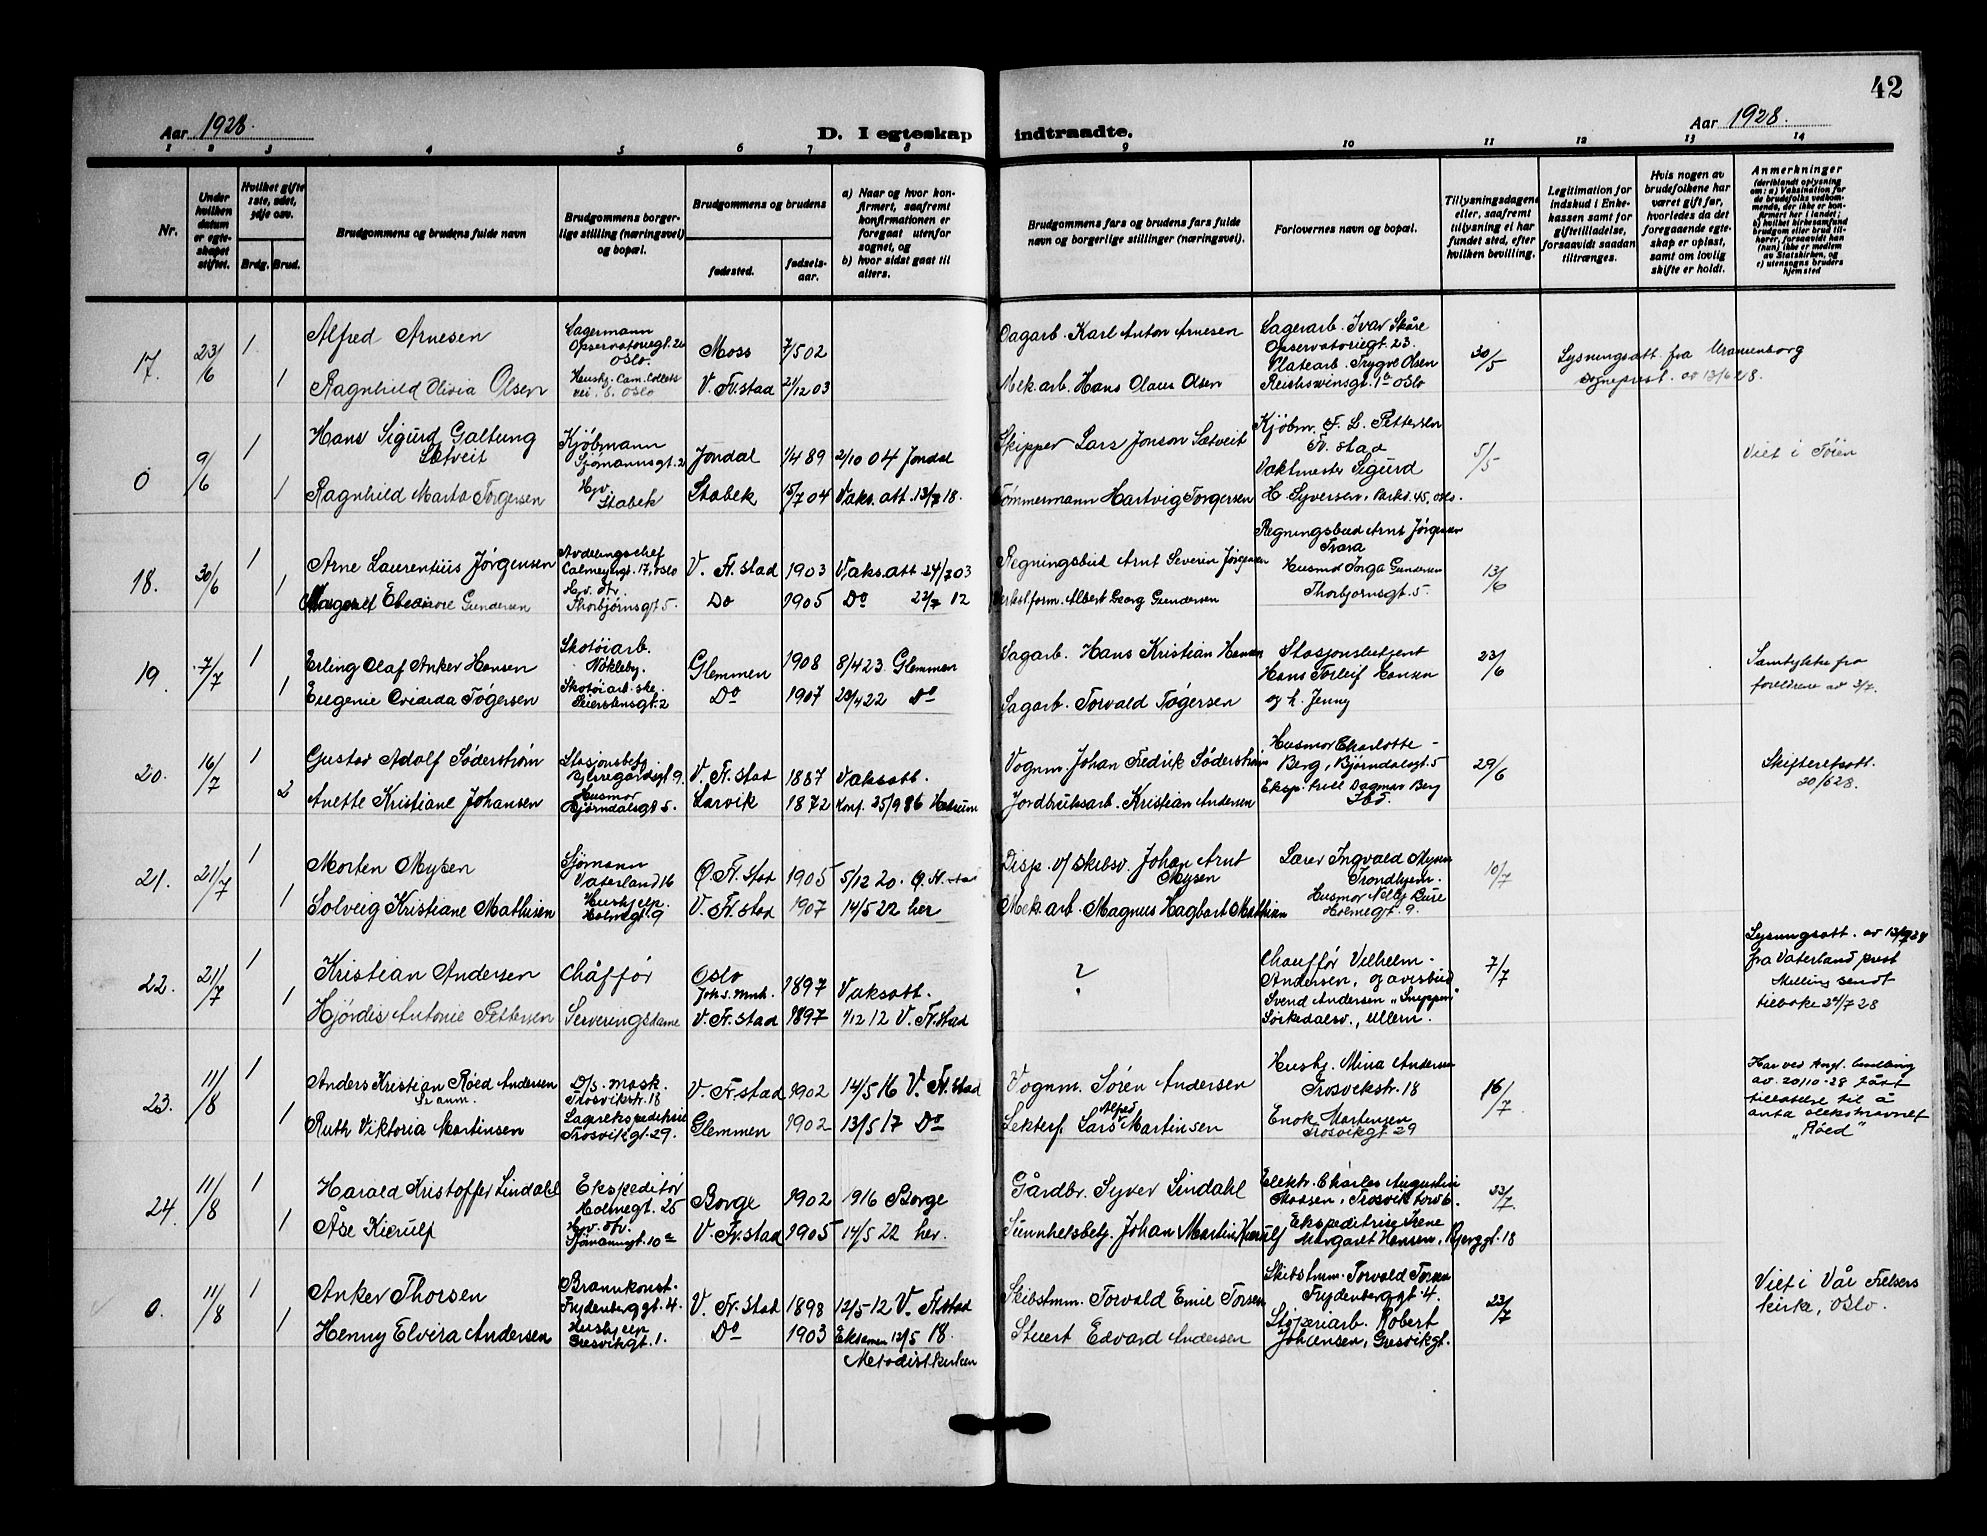 42
Aar 1928.
D. I egteskap indtraadte.
Aar 1928.
1 2 3 4 5 6 7 8 9 10 11 12 13 14
Nr.
Under hvilken datum er egteskapet stiftet.
Hvilket gifte 1ste, 2det, 3dje osv.
Brdg. Brud.
Brudgommens og brudens fulde navn
Brudgommens borgerlige stilling (næringsvei) og bopæl.
Brudgommens og brudens
fødested.
fødselsaar.
a) Naar og hvor konfirmert, saafremt konfirmationen er foregaat utenfor sognet, og
b) hvor sidst gaat til alters.
Brudgommens fars og brudens fars fulde navn og borgerlige stillinger (næringsvei).
Forlovernes navn og bopæl.
Tillysningsdagene eller, saafremt tillysning ei har fundet sted, efter hvilken bevilling.
Legitimation for indskud i Enkekassen samt for giftetilladelse, forsaavidt saadan tiltrænges.
Hvis nogen av brudefolkene har været gift før, hvorledes da det foregaaende egteskap er opløst, samt om lovlig skifte er holdt.
Anmerkninger
(deriblandt oplysning om: a) Vaksination for de brudefolks vedkommende, der ikke er konfirmert her i landet; b) hvilket kirkesamfund brudgom eller brud tilhører, forsaavidt han (hun) ikke er medlem av Statskirken, og c) utensogns bruders hjemsted
17. 23/6 1 Alfred Arnesen
Lagermann Observatoriegt. 2 Oslo.
Moss 7/5 02
Dagarb. Karl Anton Arnesen
Lagerarb. Ivar Skåre Observatoriegt. 23.
30/5
Lysningsatt. fra Uranienborg sogneprest. av 13/6 28.
1 Ragnhild Olivia Olsen
Oslo
V. Fr.stad 21/12 03
Mek. arb. Hans Claus Olsen
Platearb. Trygve Olsen Oslo
0 9/6 1 Hans Sigurd Galtung Sætveit
Kjøbmann Sjømannsgt. 2
Jondal 1/4 89 2/10 04 Jondal
Skipper Lars Jonson Sætveit
Kjøbm. F. L. Pettersen Fr. stad
5/5
Viet i Tøien
1 Ragnhild Marta Torgersen
Hjv. Stabek
Stabek 15/7 04 Vaks. att. 13/7 18.
Tømmermann Hartvig Torgersen
Vaktmester Sigurd H. Syversen, Parkv. 45, Oslo.
18. 30/6 1 Arne Laurentius Jørgensen
Avdelingschef Calmeyergt. 17, Oslo
V. Fr. stad 1903 Vaks. att. 24/7 03
Regningsbud Arnt Severin Jørgensen
Regningsbud Arnt Jørgensen Trara
13/6
1 Margaret Eleonore Gundersen
Hjv. dtr. Thorbjørnsgt. 5.
Do 1905 Do 22/7 12
Verkstform. Albert Georg Gundersen
Husmor Inga Gundersen Thorbjørnsgt. 5.
19. 7/7 1 Erling Olaf Anker Hansen
Skotøiarb. Nøkleby.
Glemmen 1908 8/4 23. Glemmen
Sagarb. Hans Kristian Hansen
Stasjonsbetjent Hans Torleif Hansen
23/6
Samtykke fra foreldrene av 3/7.
1 Eugenie Ovidia Tøgersen
Skotøiarb.ske. Seierstensgt. 2
Do 1907 20/4 22 Do
Sagarb. Torvald Tøgersen
og h. Jenny
20. 16/7 1 Gustav Adolf Söderström
Stasjonsbetj.
V. Fr. stad 1887 Vaksatt.
Vognm. Johan Fredrik Söderström
Husmor Charlotte Berg, Bjørndalsgt. 5
29/6
Skifteretsatt. 20/6 28.
2 Anette Kristiane Johansen
Husmor Bjørndalsgt. 5.
Larvik 1872 Konf. 25/9 86
Jordbruksarb. Kristian Andersen
Eksp. trice Dagmar Berg Ibd.
21. 21/7 1 Morten Mysen
Sjømann Vaterland 16
Ø. Fr. Stad 1905 5/12 20. Ø. Fr. stad
Disp. v/ skibsv. Johan Arnt Mysen
Lærer Ingvald Mysen Trondhjem.
10/7
1 Solveig Kristiane Mathisen
Hushjelp. Holmegt. 9
V. Fr. stad 1907 14/5 22 her
Mek. arb. Magnus Hagbart Mathisen
Husmor Nelly Bure Holmegt. 9.
22. 21/7 1 Kristian Andersen
Chåffør
Oslo Joh.s. mnh. 1897 Vaksatt.
?
Chauffør Vilhelm Andersen, og avisbud
7/7
Lysningsatt. av 13/7 28 fra Vaterland prest Melling sendt tilbake 24/7 28
1 Hjørdis Antonie Pettersen
Serveringsdame
V. Fr. stad 1897 1/12 12 V. Fr. stad
Svend Andersen "Sneppen" Sørkedalsv., Ullern.
23. 11/8 1 Anders Kristian Røed Andersen
D/s. mask. Trosvikstr. 18
V. Fr. stad 1902 14/5 16 V. Fr. stad
Vognm. Søren Andersen
Hushj. Mina Andersen Trosvikstr. 18
16/7
Har ved
av 20/10-28 fått tillatelse til å anta slektsnavnet "Røed"
1 Ruth Viktoria Martinsen
Lagerekspeditrise Trosvikgt. 29.
Glemmen 1902 13/5 17 Do
Lekterf. Lars Alfred Martinsen
Enok Martensen Trosvikgt 29
24. 11/8 1 Harald Kristoffer Lindahl
Ekspeditør Holmegt. 25
Borge 1902 1916 Borge
Gårdbr. Syver Lindahl
Elektr. Charles Augustin Trosvik torv 6.
23/7
1 Åse Kierulf
Hjv. dtr. Sjømannsgt. 10a
V. Fr. stad 1905 14/5 22 her.
Sunnhetsbetj. Johan Martin Kierulf
Ekspeditrise Irene Margaret Hansen, Bjerggt. 18
0. 11/8 1 Anker Thorsen
Brannkonst. Frydenberggt. 4.
V. Fr. Stad 1898 12/5-12 V. Fr. stad
Skibstmm. Torvald Emil Torsen
Skibstmm. Torvald Torsen Frydenberggt. 4.
23/7
Viet i Vår Frelsers kirke, Oslo.
1 Henny Elvira Andersen
Hushjelp Gresvikgt. 1.
Do 1903 Eksamen 12/5 18. Metodistkirken
Stuert Edvard Andersen
Støperiarb. Robert Johansen, Gresvikgt.